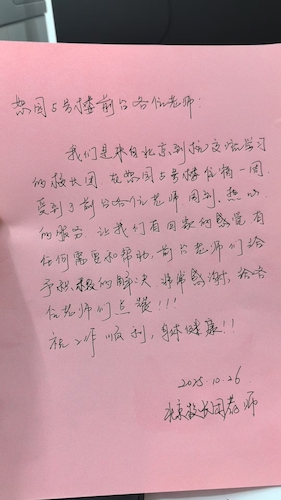 园5号楼前台各位老师：
我们是来自北京到杭交流学习
的校长团，在园5号楼住宿一周，
受到了前台各位老师周到、热心
的服务，让我们有回家的感觉，有
任何需要和帮助，前台老师们给
予积极的解决，非常感谢，给各
位老师们点赞!!!
祝工作顺利，身体健康!!
2025.10.26
北京校长团老师